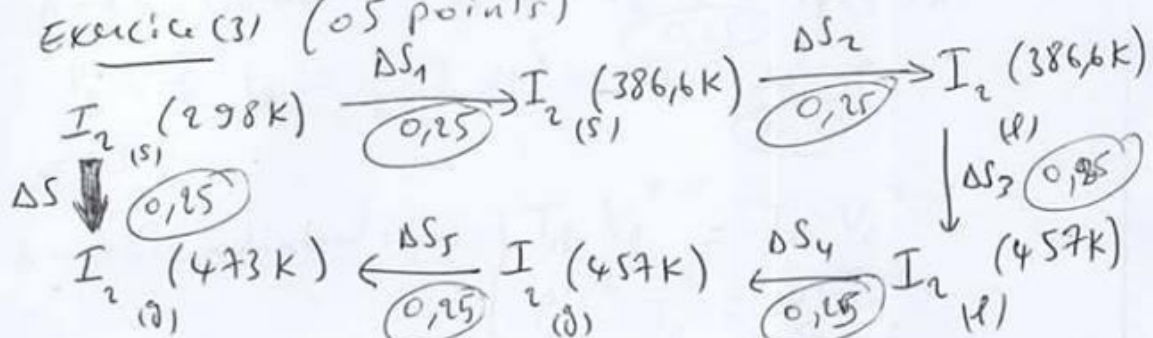 Exercice (3) (05 points)
I₂ (s) (298K) ΔS₁ 0,25 I₂ (s) (386,6K) ΔS₂ 0,25 I₂ (l) (386,6K)
ΔS 0,25 ΔS₃ 0,25
I₂ (g) (473K) ΔS₅ 0,25 I₂ (g) (457K) ΔS₄ 0,25 I₂ (l) (457K)